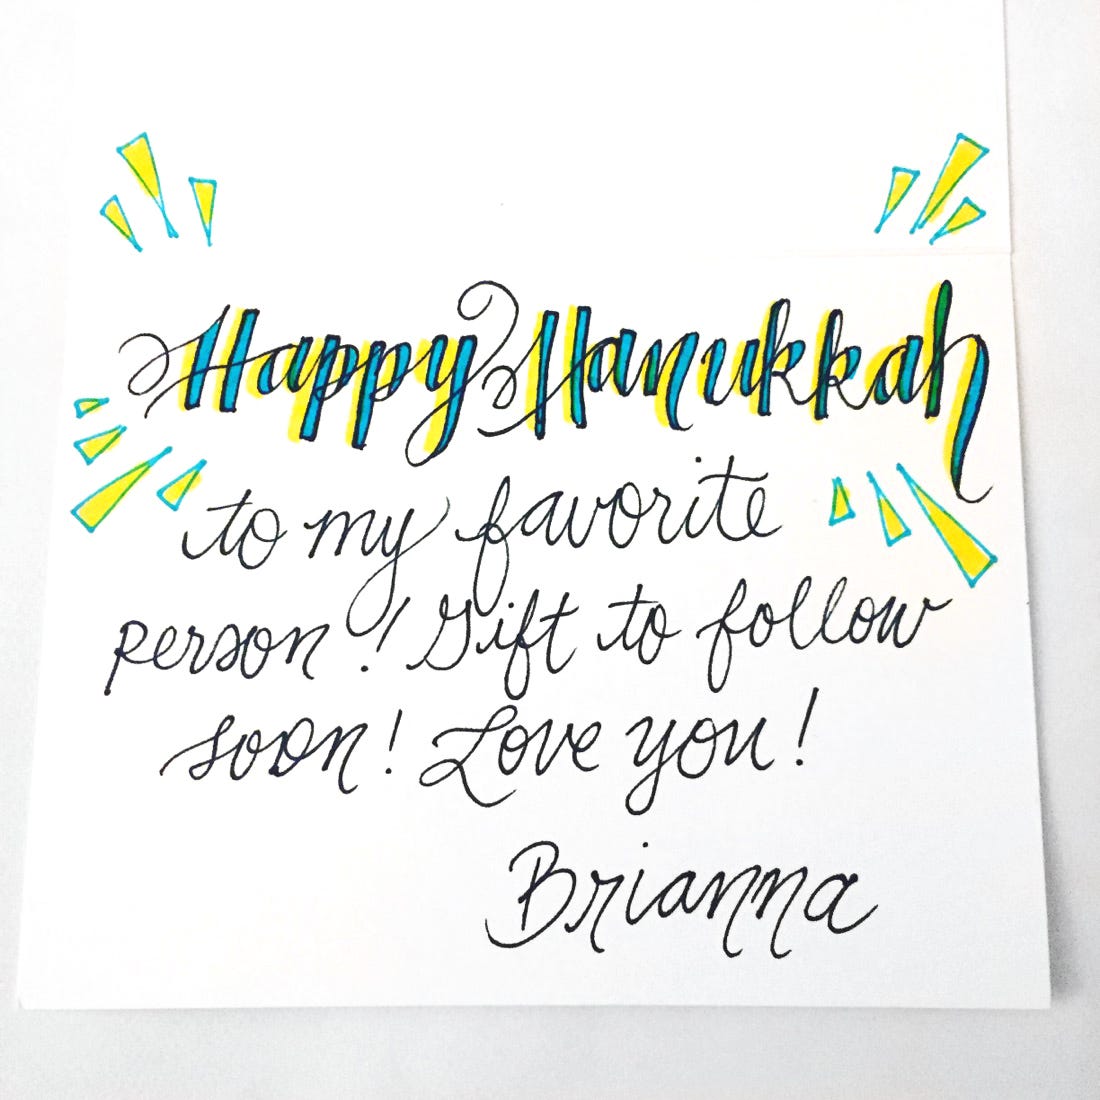 Happy Hanukkah
to my favorite
person! Gift to follow
soon! Love you!
Brianna